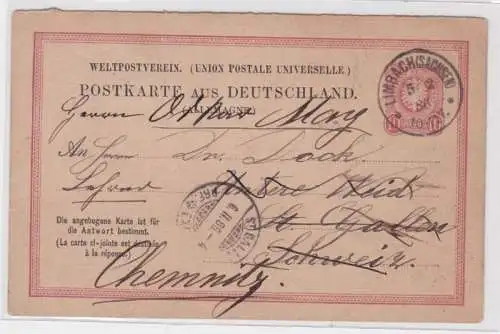 WELTPOSTVEREIN. (UNION POSTALE UNIVERSELLE.)
POSTKARTE AUS DEUTSCHLAND.
(ALLEMAGNE)
LIMBACH (SACHSEN)
Herrn Oskar May
An Herrn Dr. Doch.
Lehrer Untere Waid
St. Gallen
Schweiz.
Chemnitz.
Die angebogene Karte ist für
die Antwort bestimmt.
(La carte ci-jointe est destinée
à la réponse.)
ST. GALLEN